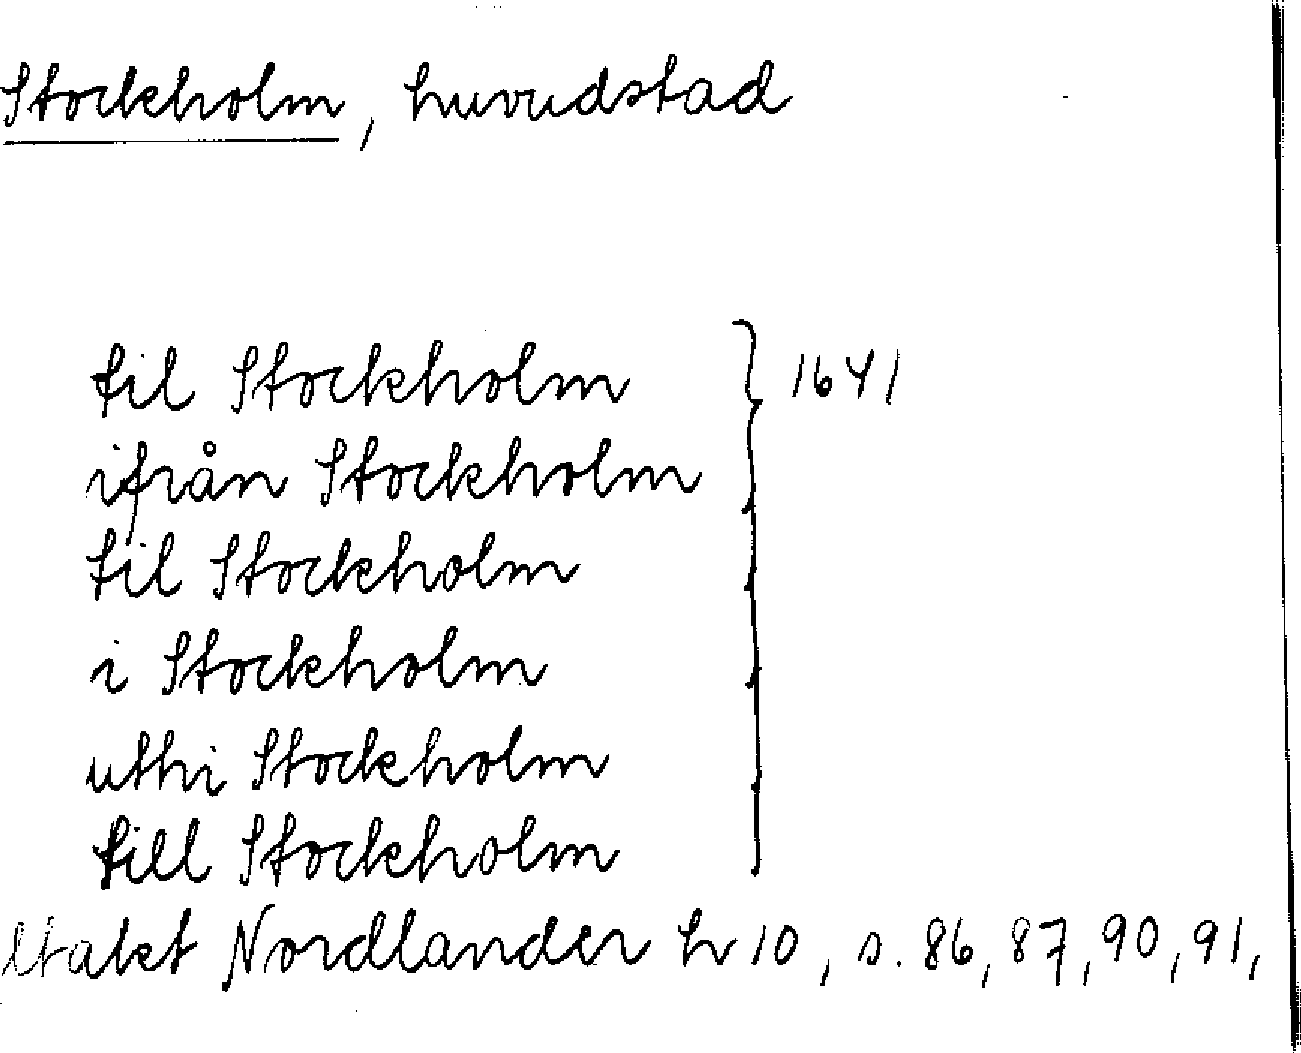 Stockholm, huvudstad
til Stockholm } 1641
ifrån Stockholm
til Stockholm
i Stockholm
uthi Stockholm
till Stockholm
Utakt Nordlander h 10, s. 86, 87, 90, 91,